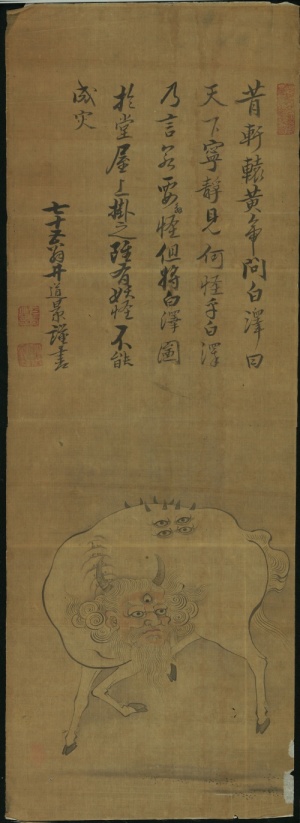 昔軒轅黄帝問白澤曰
天下寧静見何怪乎白澤
乃言若要為怪但将白澤圖
於堂屋上掛之雖有妖怪不能
成灾
七十五翁井道景謹書